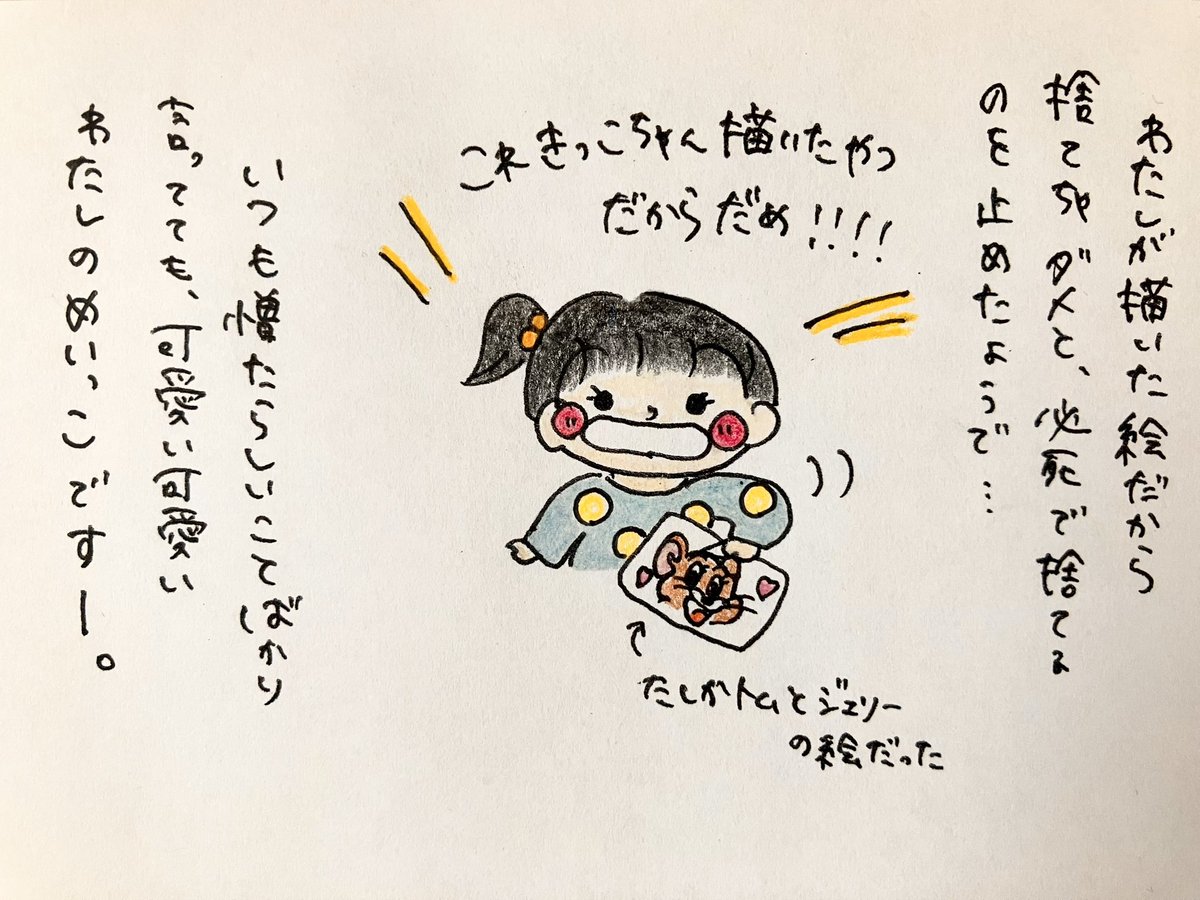 わたしが描いた絵だから
捨てちゃダメと、必死で捨てる
のを止めたようで…
これきっこちゃん描いたやつ
だからだめ!!!!
たしかトムとジェリー
の絵だった
いつも憎たらしいことばかり
言ってても、可愛い可愛い
わたしのめいっこですー。